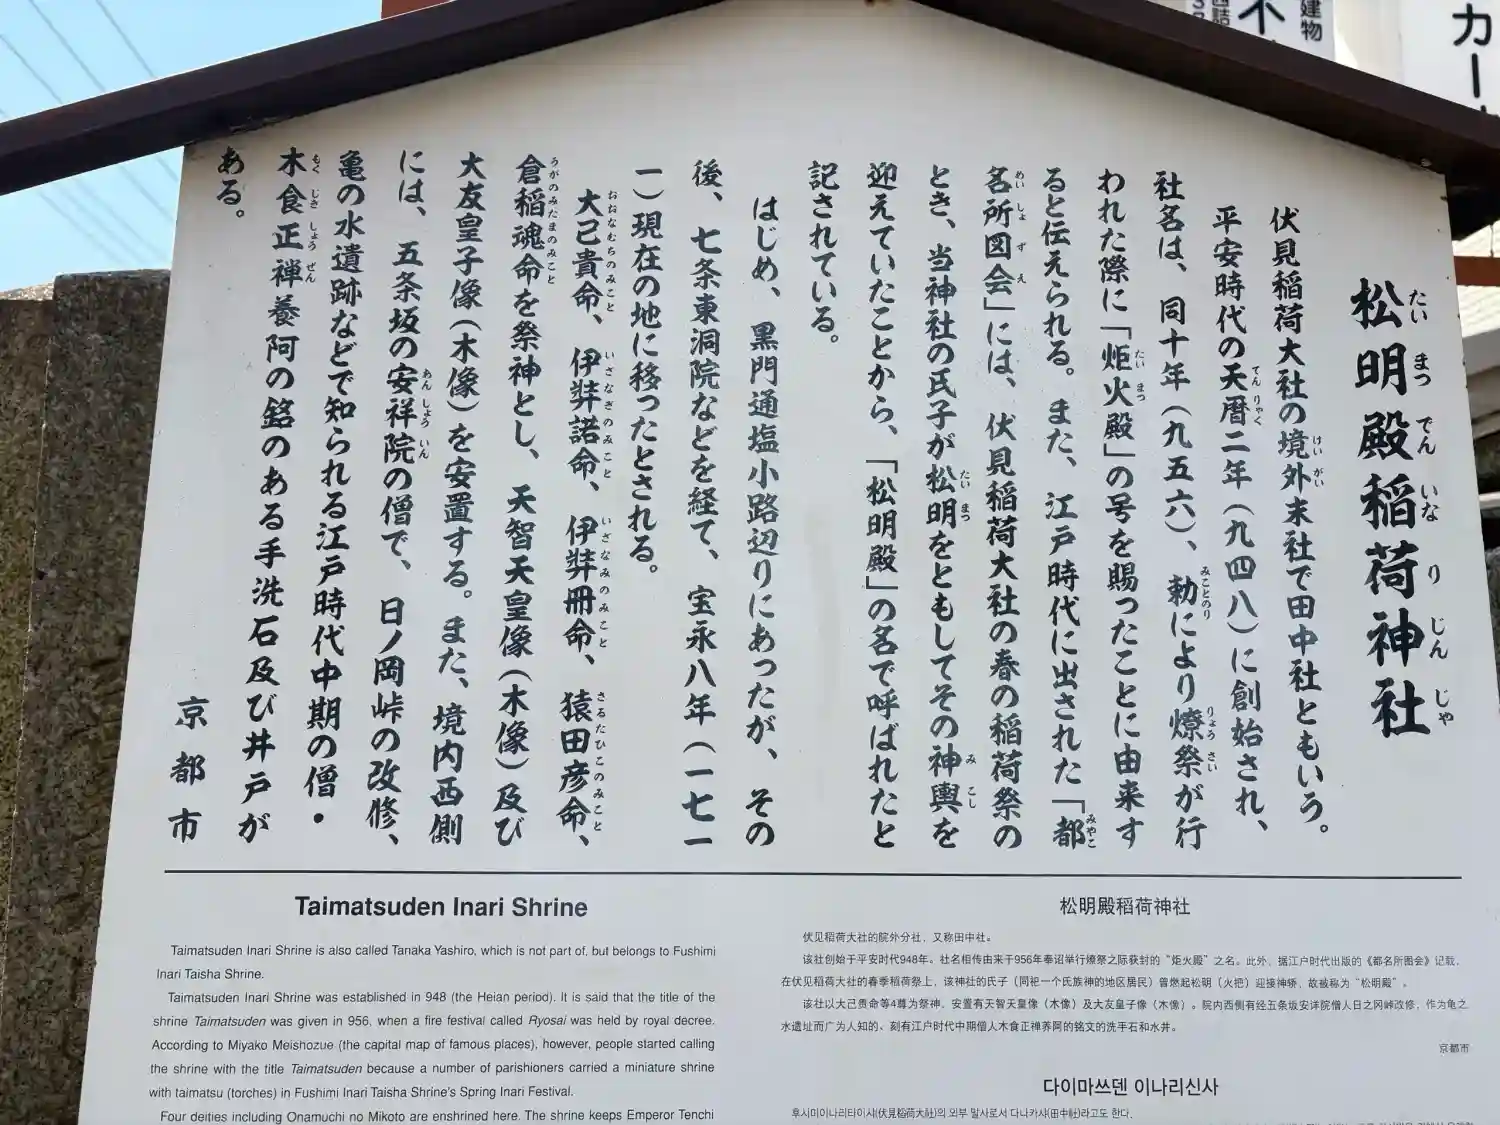 松明殿稲荷神社
たいまつでんいなりじんじゃ
伏見稲荷大社の境外末社で田中社ともいう。
けいがい
平安時代の天暦二年(九四八)に創始され、
てんりゃく
社名は、同十年(九五六)、勅により燎祭が行
みことのり りょうさい
われた際に「炬火殿」の号を賜ったことに由来す
たいまつ
ると伝えられる。また、江戸時代に出された「都
みやこ
名所図会」には、伏見稲荷大社の春の稲荷祭の
めいしょずえ
とき、当神社の氏子が松明をともしてその神輿を
たいまつ みこし
迎えていたことから、「松明殿」の名で呼ばれたと
記されている。
はじめ、黒門通塩小路辺りにあったが、その
後、七条東洞院などを経て、宝永八年(一七一
一)現在の地に移ったとされる。
大己貴命、伊弉諾命、伊弉冊命、猿田彦命、
おおなむちのみこと いざなぎのみこと いざなみのみこと さるたひこのみこと
倉稲魂命を祭神とし、天智天皇像(木像)及び
うがのみたまのみこと
大友皇子像(木像)を安置する。また、境内西側
には、五条坂の安祥院の僧で、日ノ岡峠の改修、
あんしょういん
亀の水遺跡などで知られる江戸時代中期の僧・
木食正禅養阿の銘のある手洗石及び井戸が
もくじきしょうぜん
ある。
京都市
Taimatsuden Inari Shrine
Taimatsuden Inari Shrine is also called Tanaka Yashiro, which is not part of, but belongs to Fushimi
Inari Taisha Shrine.
Taimatsuden Inari Shrine was established in 948 (the Heian period). It is said that the title of the
shrine Taimatsuden was given in 956, when a fire festival called Ryosai was held by royal decree.
According to Miyako Meishozue (the capital map of famous places), however, people started calling
the shrine with the title Taimatsuden because a number of parishioners carried a miniature shrine
with taimatsu (torches) in Fushimi Inari Taisha Shrine's Spring Inari Festival.
Four deities including Onamuchi no Mikoto are enshrined here. The shrine keeps Emperor Tenchi
松明殿稻荷神社
伏见稻荷大社的院外分社，又称田中社。
该社创始于平安时代948年。社名相传由来于956年奉诏举行燎祭之际获封的“炬火殿”之名。此外，据江户时代出版的《都名所图会》记载，
在伏见稻荷大社的春季稻荷祭上，该神社的氏子（同祀一个氏族神的地区居民）曾燃起松明（火把）迎接神轿，故被称为“松明殿”。
该社以大己贵命等4尊为祭神，安置有天智天皇像（木像）及大友皇子像（木像）。院内西侧有经五条坂安详院僧人日之冈峠改修，作为龟之
水遗址而广为人知的、刻有江户时代中期僧人木食正禅养阿的铭文的洗手石和水井。
京都市
다이마쓰덴 이나리신사
후시미이나리타이샤(伏見稻荷大社)의 외부 말사로서 다나카샤(田中社)라고도 한다.
建物
カー